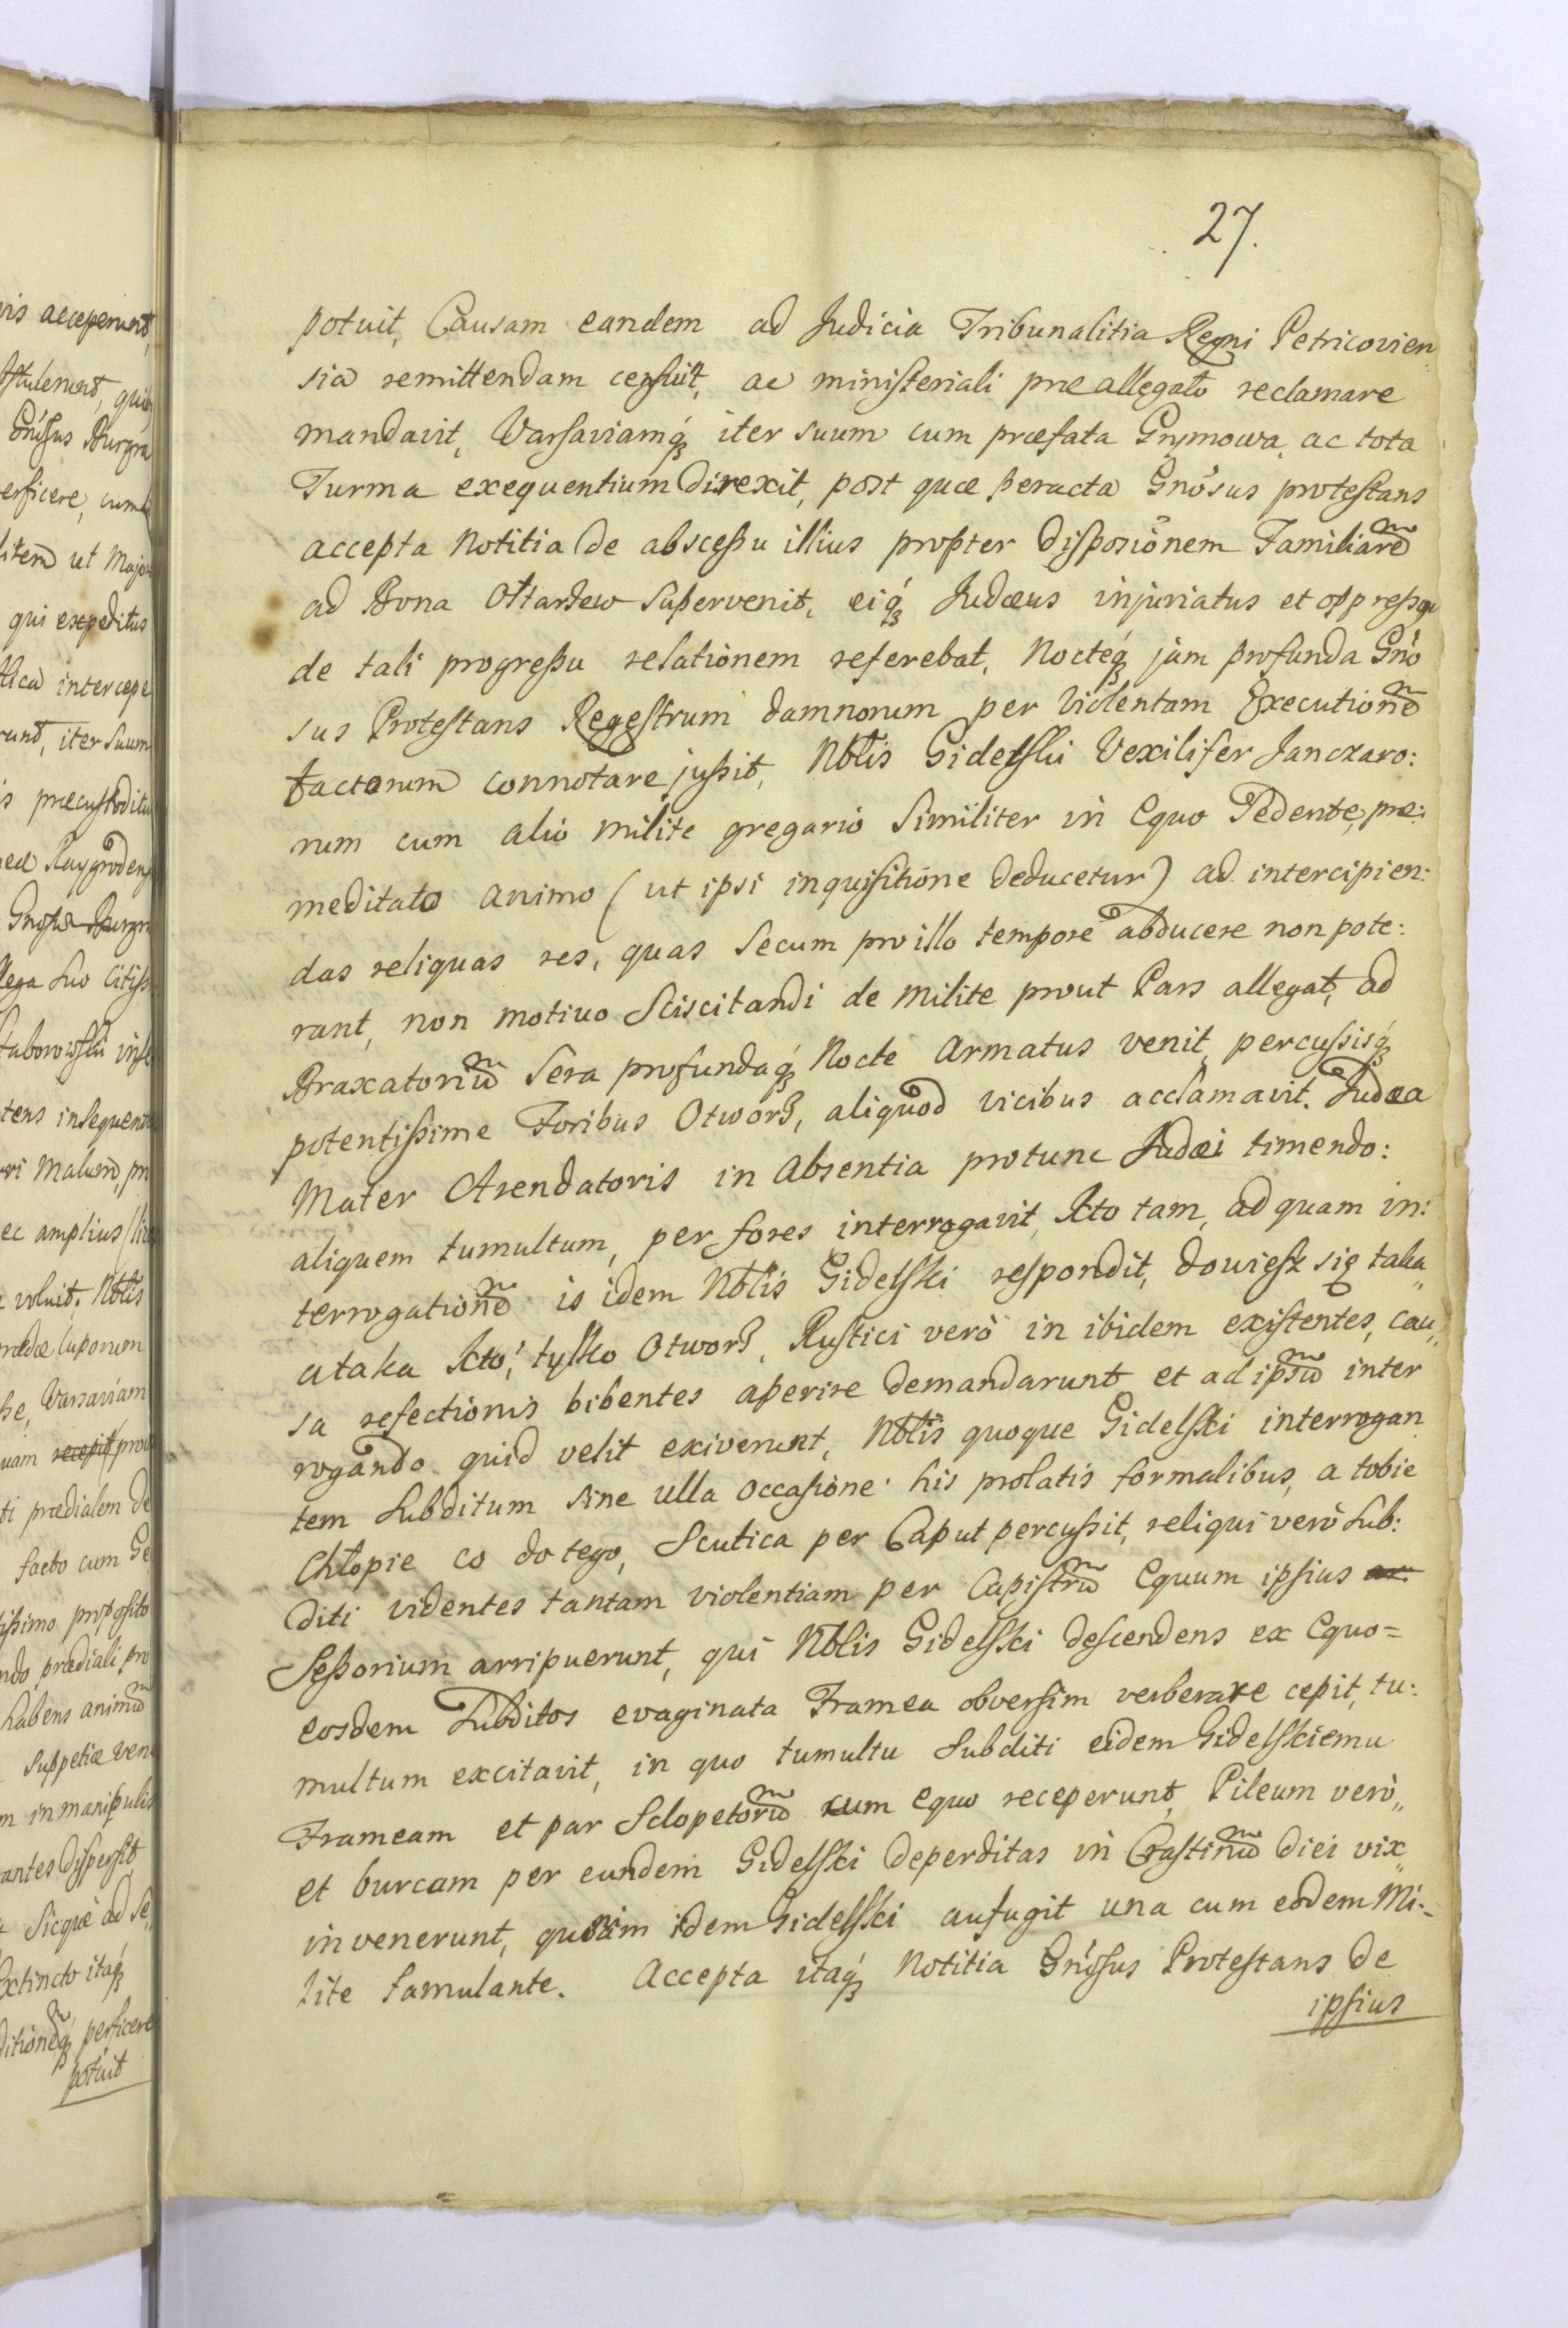 27.
potuit, Causam eandem ad Judicia Tribunalitia Regni Petricovien
sia remittendam censuit, ac ministeriali præallegato reclamare
mandavit, Varsaviamq́ꝫ iter suum cum præfata Grymowa, ac tota
Turma exequentium direxit, post quæ peracta Gnösus protestans
accepta Notitia de abscessu illius propter Disposiönem Familiarē
ad Bona Ołtarzew supervenit, eiq́ꝫ Judæus injuriatus et oppressus
de tali progressu relationem referebat, Nocteq́ꝫ jam profunda Gnö
sus Protestans Regestrum damnorum per violentam Executionē
factorum connotare jussit, Nblis Gidelski Vexilifer Janczaro:
rum cum alio milite gregario Similiter in Equo Sedente, præ:
meditato animo (ut ipsi inquisitione deducetur) ad intercipien:
das reliquas res, quas secum pro illo tempore abducere non pote:
rant, non motivo Sciscitandi de Milite prout Pars allegat, ad
Braxatoriū Sera profundaq́ꝫ Nocte armatus venit, percussisq́ꝫ
potentissime Foribus Otworz, aliquod vicibus acclamavit. Judæa
Mater Arendatoris in absentia protunc Judæi timendo:
aliquem tumultum, per fores interrogavit, Kto tam, ad quam in:
terrogationē is idem Nblis Gidelski respondit, dowiesz się taka
ataka Kto, tylko Otworz, Rustici verò in ibidem existentes, cau„
sa refectionis bibentes aperire demandarunt et ad ipsū inter
rogando quid velit exiverunt, Nblis quoque Gidelski interrogan
tem Subditum sine ulla occasione his prolatis formalibus, a tobie
Chłopie co do tego, Scutica per Caput percussit, reliqui verò Sub:
diti videntes tantam violentiam per Capistrū Equum ipsius ar:
Sessorium arripuerunt, qui Nblis Gidelski descendens ex Equo=
eosdem Subditos evaginata Framea obversim verberare cepit, tu:
multum excitavit, in quo tumultu Subditi eidem Gidelskiemu
Frameam et par Sclopetorū cum Equo receperunt, Pileum verò„
et burcam per eundem Gidelski deperditas in Crastinū diei vix„
invenerunt, quoniam idem Gidelski aufugit una cum eodem Mi:
lite famulante. Accepta itaq́ꝫ Notitia Gnösus Protestans de
ipsius